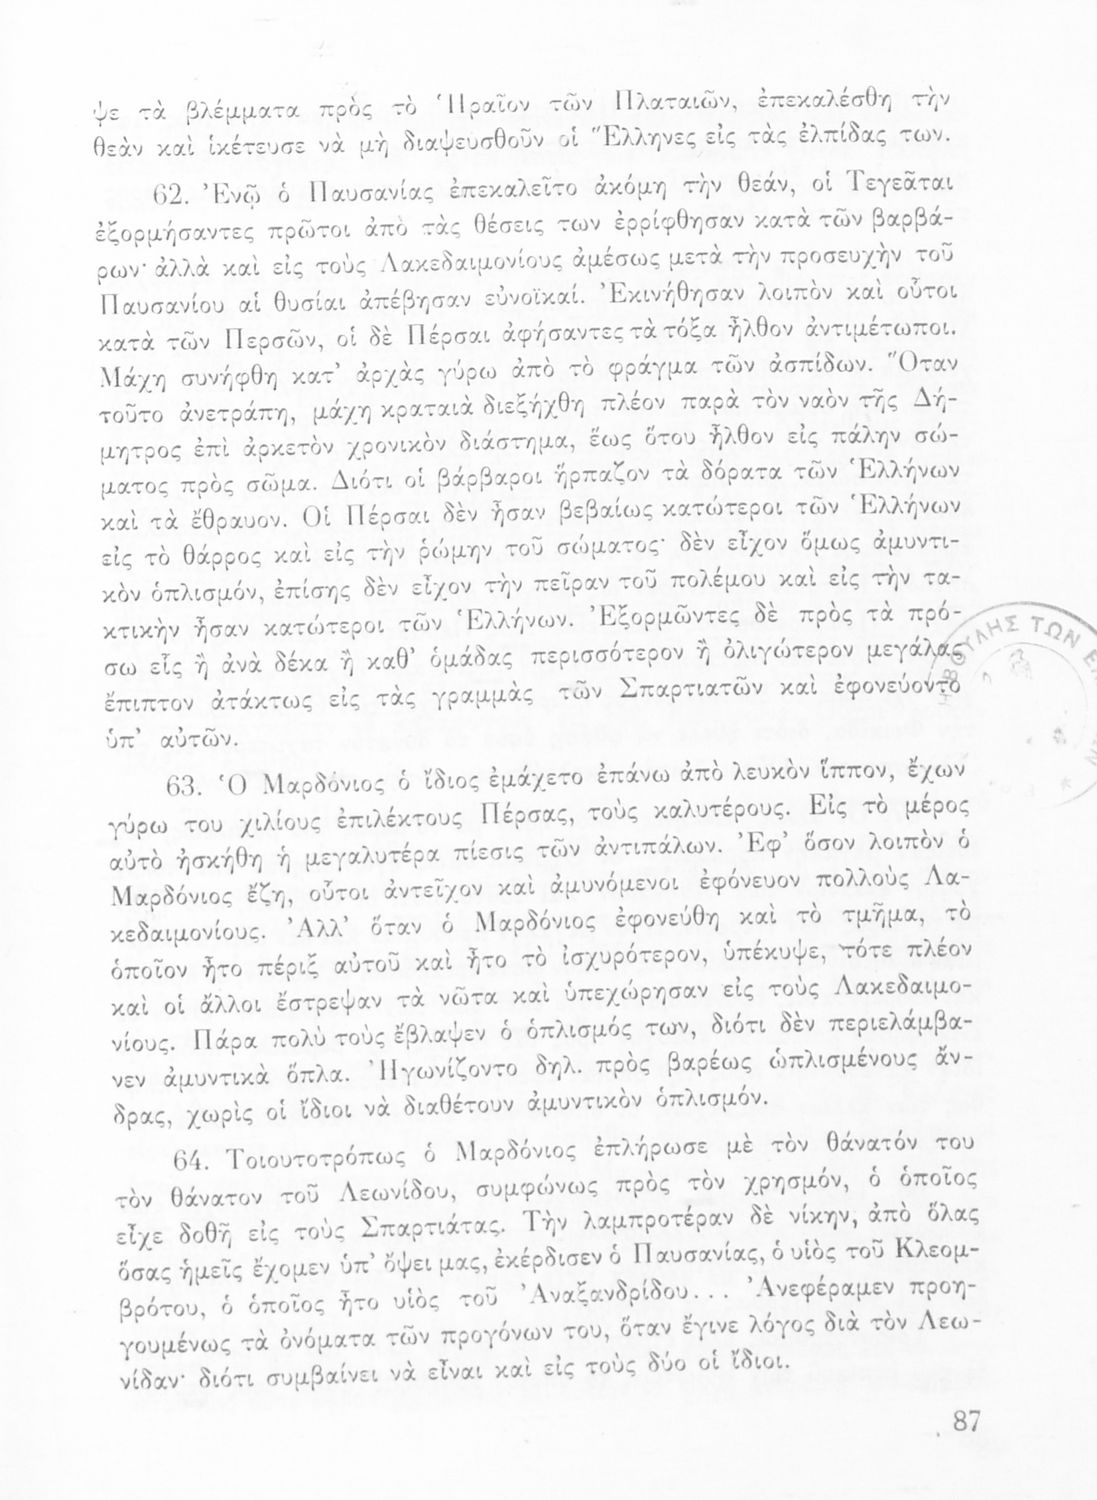 ψε τὰ βλέμματα πρὸς τὸ Ἡραῖον τῶν Πλαταιῶν, ἐπεκαλέσθη τὴν
θεὰν καὶ ἱκέτευσε νὰ μὴ διαψευσθοῦν οἱ Ἕλληνες εἰς τὰς ἐλπίδας των.
62. Ἐνῷ ὁ Παυσανίας ἐπεκαλεῖτο ἀκόμη τὴν θεάν, οἱ Τεγεᾶται
ἐξορμήσαντες πρῶτοι ἀπὸ τὰς θέσεις των ἐρρίφθησαν κατὰ τῶν βαρβά-
ρων· ἀλλὰ καὶ εἰς τοὺς Λακεδαιμονίους ἀμέσως μετὰ τὴν προσευχὴν τοῦ
Παυσανίου αἱ θυσίαι ἀπέβησαν εὐνοϊκαί. Ἐκινήθησαν λοιπὸν καὶ οὗτοι
κατὰ τῶν Περσῶν, οἱ δὲ Πέρσαι ἀφήσαντες τὰ τόξα ἦλθον ἀντιμέτωποι.
Μάχη συνήφθη κατ’ ἀρχὰς γύρω ἀπὸ τὸ φράγμα τῶν ἀσπίδων. Ὅταν
τοῦτο ἀνετράπη, μάχη κραταιὰ διεξήχθη πλέον παρὰ τὸν ναὸν τῆς Δή-
μητρος ἐπὶ ἀρκετὸν χρονικὸν διάστημα, ἕως ὅτου ἦλθον εἰς πάλην σώ-
ματος πρὸς σῶμα. Διότι οἱ βάρβαροι ἥρπαζον τὰ δόρατα τῶν Ἑλλήνων
καὶ τὰ ἔθραυον. Οἱ Πέρσαι δὲν ἦσαν βεβαίως κατώτεροι τῶν Ἑλλήνων
εἰς τὸ θάρρος καὶ εἰς τὴν ῥώμην τοῦ σώματος· δὲν εἶχον ὅμως ἀμυντι-
κὸν ὁπλισμόν, ἐπίσης δὲν εἶχον τὴν πεῖραν τοῦ πολέμου καὶ εἰς τὴν τα-
κτικὴν ἦσαν κατώτεροι τῶν Ἑλλήνων. Ἐξορμῶντες δὲ πρὸς τὰ πρό-
σω εἷς ἢ ἀνὰ δέκα ἢ καθ’ ὁμάδας περισσότερον ἢ ὀλιγώτερον μεγάλας
ἔπιπτον ἀτάκτως εἰς τὰς γραμμὰς τῶν Σπαρτιατῶν καὶ ἐφονεύοντο
ὑπ’ αὐτῶν.
63. Ὁ Μαρδόνιος ὁ ἴδιος ἐμάχετο ἐπάνω ἀπὸ λευκὸν ἵππον, ἔχων
γύρω του χιλίους ἐπιλέκτους Πέρσας, τοὺς καλυτέρους. Εἰς τὸ μέρος
αὐτὸ ἠσκήθη ἡ μεγαλυτέρα πίεσις τῶν ἀντιπάλων. Ἐφ’ ὅσον λοιπὸν ὁ
Μαρδόνιος ἔζη, οὗτοι ἀντεῖχον καὶ ἀμυνόμενοι ἐφόνευον πολλοὺς Λα-
κεδαιμονίους. Ἀλλ’ ὅταν ὁ Μαρδόνιος ἐφονεύθη καὶ τὸ τμῆμα, τὸ
ὁποῖον ἦτο πέριξ αὐτοῦ καὶ ἦτο τὸ ἰσχυρότερον, ὑπέκυψε, τότε πλέον
καὶ οἱ ἄλλοι ἔστρεψαν τὰ νῶτα καὶ ὑπεχώρησαν εἰς τοὺς Λακεδαιμο-
νίους. Πάρα πολὺ τοὺς ἔβλαψεν ὁ ὁπλισμός των, διότι δὲν περιελάμβα-
νεν ἀμυντικὰ ὅπλα. Ἠγωνίζοντο δηλ. πρὸς βαρέως ὡπλισμένους ἄν-
δρας, χωρὶς οἱ ἴδιοι νὰ διαθέτουν ἀμυντικὸν ὁπλισμόν.
64. Τοιουτοτρόπως ὁ Μαρδόνιος ἐπλήρωσε μὲ τὸν θάνατόν του
τὸν θάνατον τοῦ Λεωνίδου, συμφώνως πρὸς τὸν χρησμόν, ὁ ὁποῖος
εἶχε δοθῆ εἰς τοὺς Σπαρτιάτας. Τὴν λαμπροτέραν δὲ νίκην, ἀπὸ ὅλας
ὅσας ἡμεῖς ἔχομεν ὑπ’ ὄψει μας, ἐκέρδισεν ὁ Παυσανίας, ὁ υἱὸς τοῦ Κλεομ-
βρότου, ὁ ὁποῖος ἦτο υἱὸς τοῦ Ἀναξανδρίδου... Ἀνεφέραμεν προη-
γουμένως τὰ ὀνόματα τῶν προγόνων του, ὅταν ἔγινε λόγος διὰ τὸν Λεω-
νίδαν· διότι συμβαίνει νὰ εἶναι καὶ εἰς τοὺς δύο οἱ ἴδιοι.
87
ΒΟΥΛΗΣ ΤΩΝ